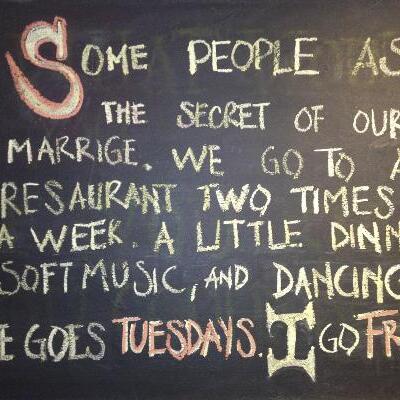 SOME PEOPLE AS
THE SECRET OF OUR
MARRIGE. WE GO TO A
RESAURANT TWO TIMES
A WEEK. A LITTLE DINN
SOFT MUSIC, AND DANCING
E GOES TUESDAYS. I GO FR